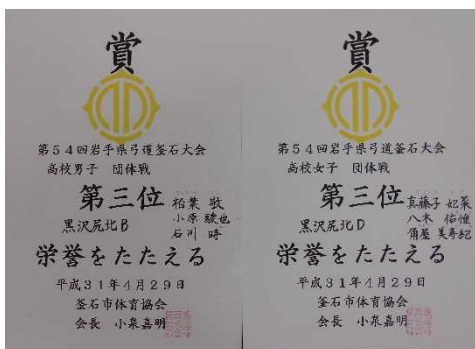 賞
第54回岩手県弓道釜石大会
高校男子 団体戦
第三位
柏葉 敬
小原 駿也
石川 時
黒沢尻北B
栄誉をたたえる
平成31年4月29日
釜石市体育協会
会長 小泉嘉明
賞
第54回岩手県弓道釜石大会
高校女子 団体戦
第三位
真藤子 妃菜
八木 佑惟
角屋 美寿紀
黒沢尻北D
栄誉をたたえる
平成31年4月29日
釜石市体育協会
会長 小泉嘉明